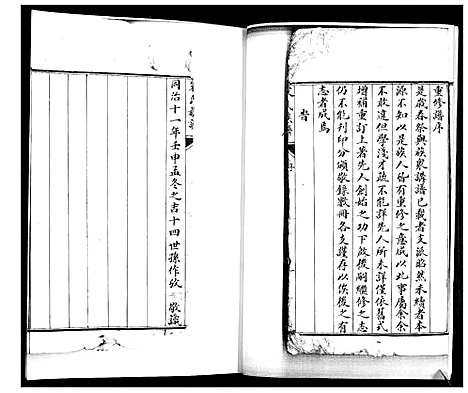 重修譜序
是歲春祭與族眾講譜已載者支派昭然未續者本
源不知以是族人皆有重修之意咸以此事屬余余
不敢違但學淺才疏不能詳先人所未詳僅依舊式
增補重訂上著先人創始之功下啟後嗣繼修之志
仍不能刊印分頒敬錄數冊各支護存以俟後之有
志者成焉
旹
同治十一年壬申孟冬之吉十四世孫作 敬識